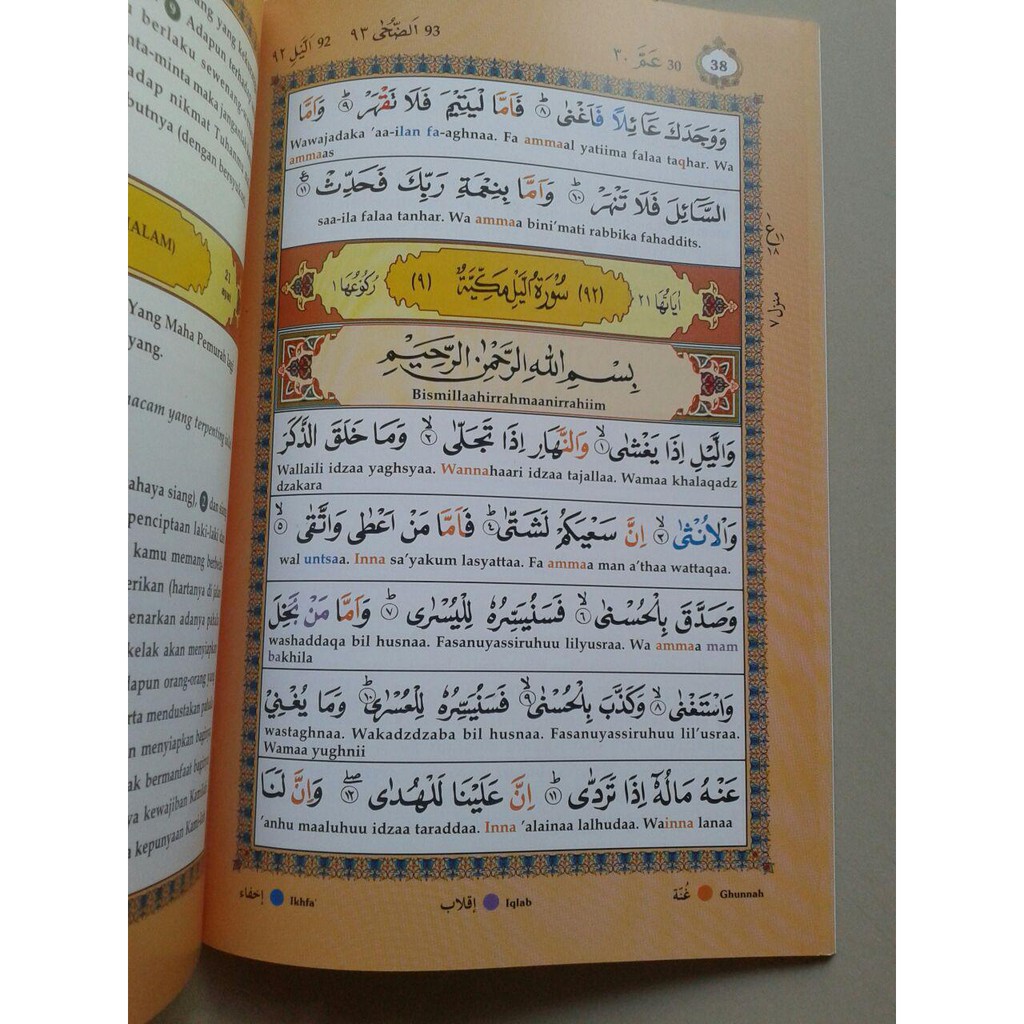 ٩٢ اَلَّيْلِ 92 ٩٣ اَلضُّحٰى 93
٣٠ عَمَّ 30
38
وَوَجَدَكَ عَآئِلًا فَاَغْنٰى ۝٨ فَاَمَّا لْيَتِيْمَ فَلَا تَقْهَرْ ۝٩ وَاَمَّا
Wawajadaka 'aa-ilan fa-aghnaa. Fa ammaal yatiima falaa taqhar. Wa
ammaas
السَّآئِلَ فَلَا تَنْهَرْ ۝١٠ وَاَمَّا بِنِعْمَةِ رَبِّكَ فَحَدِّثْ ۝١١
saa-ila falaa tanhar. Wa ammaa bini'mati rabbika fahaddits.
اٰيَاتُهَا ٢١ (٩٢) سُوْرَةُ الَّيْلِ مَكِّيَّةٌ (٩) رُكُوْعُهَا ١
منزل ٧
بِسْمِ اللّٰهِ الرَّحْمٰنِ الرَّحِيْمِ
Bismillaahirrahmaanirrahiim
وَالَّيْلِ اِذَا يَغْشٰى ۝١ وَالنَّهَارِ اِذَا تَجَلّٰى ۝٢ وَمَا خَلَقَ الذَّكَرَ
Wallaili idzaa yaghsyaa. Wannahaari idzaa tajallaa. Wamaa khalaqadz
dzakara
وَالْاُنْثٰى ۝٣ اِنَّ سَعْيَكُمْ لَشَتّٰى ۝٤ فَاَمَّا مَنْ اَعْطٰى وَاتَّقٰى ۝٥
wal untsaa. Inna sa'yakum lasyattaa. Fa ammaa man a'thaa wattaqaa.
وَصَدَّقَ بِالْحُسْنٰى ۝٦ فَسَنُيَسِّرُهٗ لِلْيُسْرٰى ۝٧ وَاَمَّا مَنْ بَخِلَ
washaddaqa bil husnaa. Fasanuyassiruhuu lilyusraa. Wa ammaa mam
bakhila
وَاسْتَغْنٰى ۝٨ وَكَذَّبَ بِالْحُسْنٰى ۝٩ فَسَنُيَسِّرُهٗ لِلْعُسْرٰى ۝١٠ وَمَا يُغْنِيْ
wastaghnaa. Wakadzdzaba bil husnaa. Fasanuyassiruhuu lil'usraa.
Wamaa yughnii
عَنْهُ مَالُهٗٓ اِذَا تَرَدّٰى ۝١١ اِنَّ عَلَيْنَا لَلْهُدٰى ۝١٢ وَاِنَّ لَنَا
'anhu maaluhuu idzaa taraddaa. Inna 'alainaa lalhudaa. Wainna lanaa
إخفاء Ikhfa' إقلاب Iqlab غُنَّة Ghunnah
yang
Adapun
berlaku
nta-minta maka
nikmat
butnya (dengan
ALAM)
21
ayat
Yang Maha Pemurah lagi
yang.
macam yang terpenting
ahaya siang), 2 dan
penciptaan laki-laki dan
kamu memang
erikan (hartanya di
enarkan adanya
kelak akan menyiapkan
dapun orang-orang yang
rta mendustakan
n menyiapkan
ak bermanfaat
a kewajiban
kepunyaan